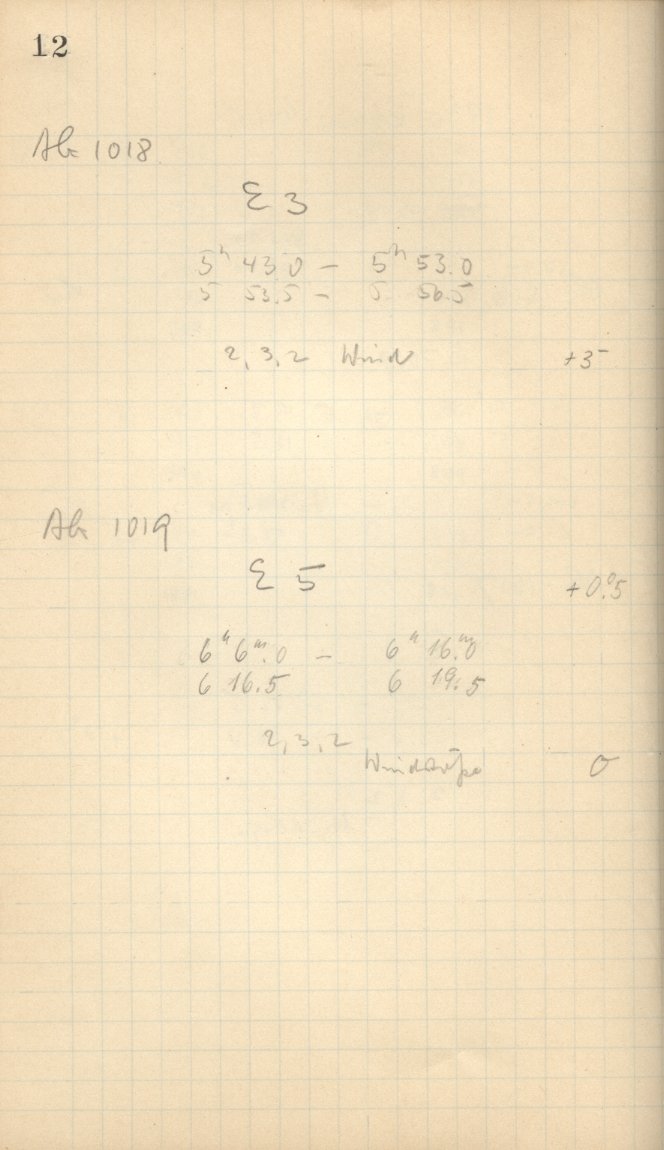 12
Ab 1018
Σ 3
5ʰ 43.0 – 5ʰ 53.0
5 53.5 – 5 56.5
2, 3, 2 Wind +3
Ab 1019
Σ 5
+0.°5
6ʰ 6ᵐ.0 – 6ʰ 16.ᵐ0
6 16.5 6 19.5
2, 3, 2
Windstöße 0